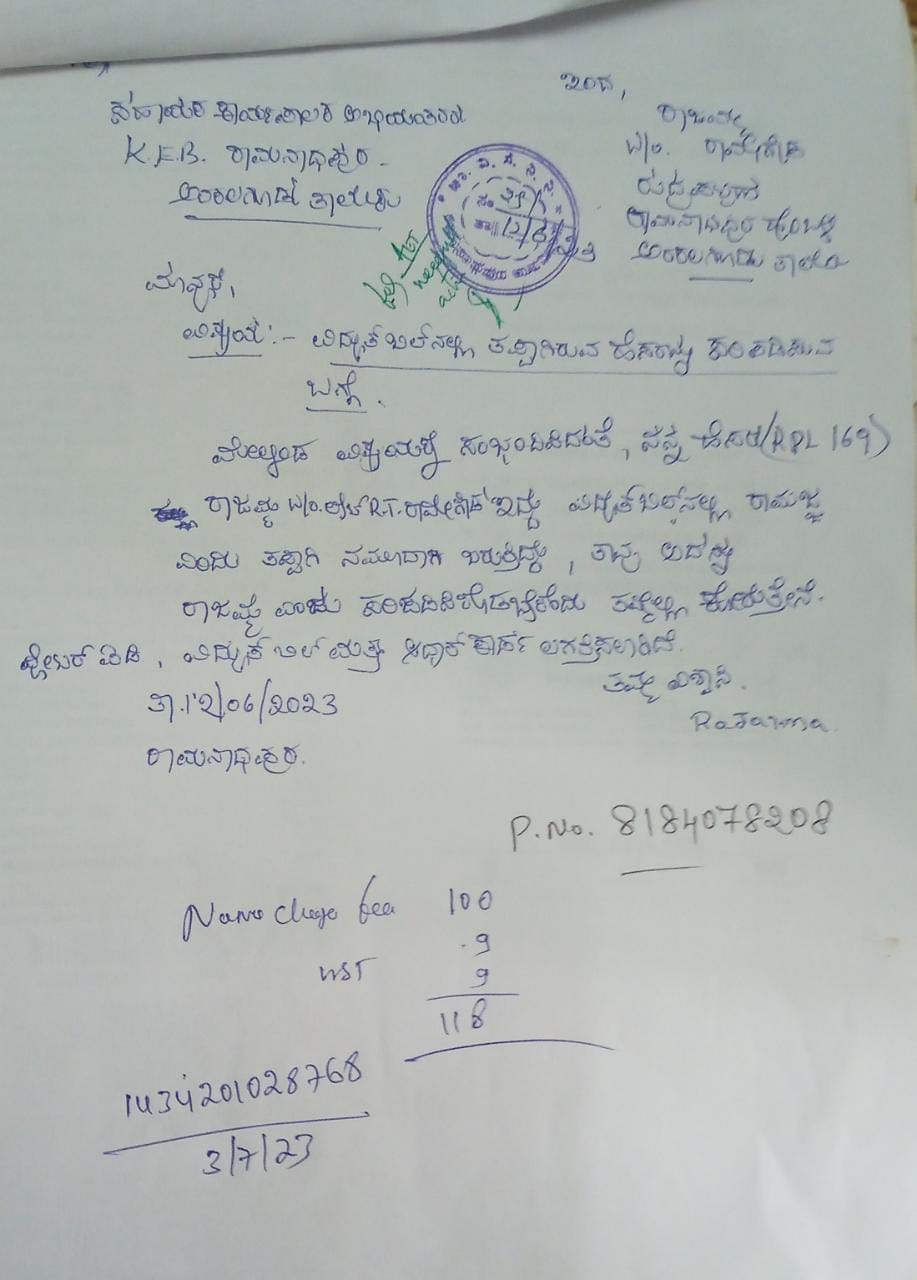 ಇಂದ,
ರಾಜಮ್ಮ
W/o. ರಾಮೇಗೌಡ
ರುದ್ರಪಟ್ಟಣ
ರಾಮನಾಥಪುರ ಹೋಬಳಿ
ಅರಕಲಗೂಡು ತಾಲೂ
ಸಹಾಯಕ ಕಾರ್ಯಪಾಲಕ ಅಭಿಯಂತರರು
K.E.B. ರಾಮನಾಥಪುರ -
ಅರಕಲಗೂಡು ತಾಲ್ಲೂಕು
ಮಾನ್ಯರೆ,
ವಿಷಯ :- ವಿದ್ಯುತ್ ಬಿಲ್‌ನಲ್ಲಿ ತಪ್ಪಾಗಿರುವ ಹೆಸರನ್ನು ಸರಿಪಡಿಸುವ
ಬಗ್ಗೆ .
ಮೇಲ್ಕಂಡ ವಿಷಯಕ್ಕೆ ಸಂಭಂದಿಸಿದಂತೆ, ನನ್ನ ಹೆಸರು (RPL 169)
ರಾಜಮ್ಮ W/o. ಲೇಟ್ R.T. ರಾಮೇಗೌಡ ಇದ್ದು ವಿದ್ಯುತ್ ಬಿಲ್‌ನಲ್ಲಿ ರಾಮಜ್ಜ
ಎಂದು ತಪ್ಪಾಗಿ ನಮೂದಾಗಿ ಬರುತ್ತಿದ್ದು , ತಾವು ಅದನ್ನು
ರಾಜಮ್ಮ ಎಂದು ಸರಿಪಡಿಸಿಕೊಡಬೇಕೆಂದು ತಮ್ಮಲ್ಲಿ ಕೋರುತ್ತೇನೆ.
ವೋಟರ್ ಐಡಿ , ವಿದ್ಯುತ್ ಬಿಲ್ ಮತ್ತು ಆಧಾರ್ ಕಾರ್ಡ್ ಲಗತ್ತಿಸಲಾಗಿದೆ.
ತಮ್ಮ ವಿಶ್ವಾಸಿ.
ತಾ. 12/06/2023
Rajamma
ರಾಮನಾಥಪುರ.
P.No. 8184078208
Name Chage fee 100
9
GST 9
118
1434201028768
3/7/23